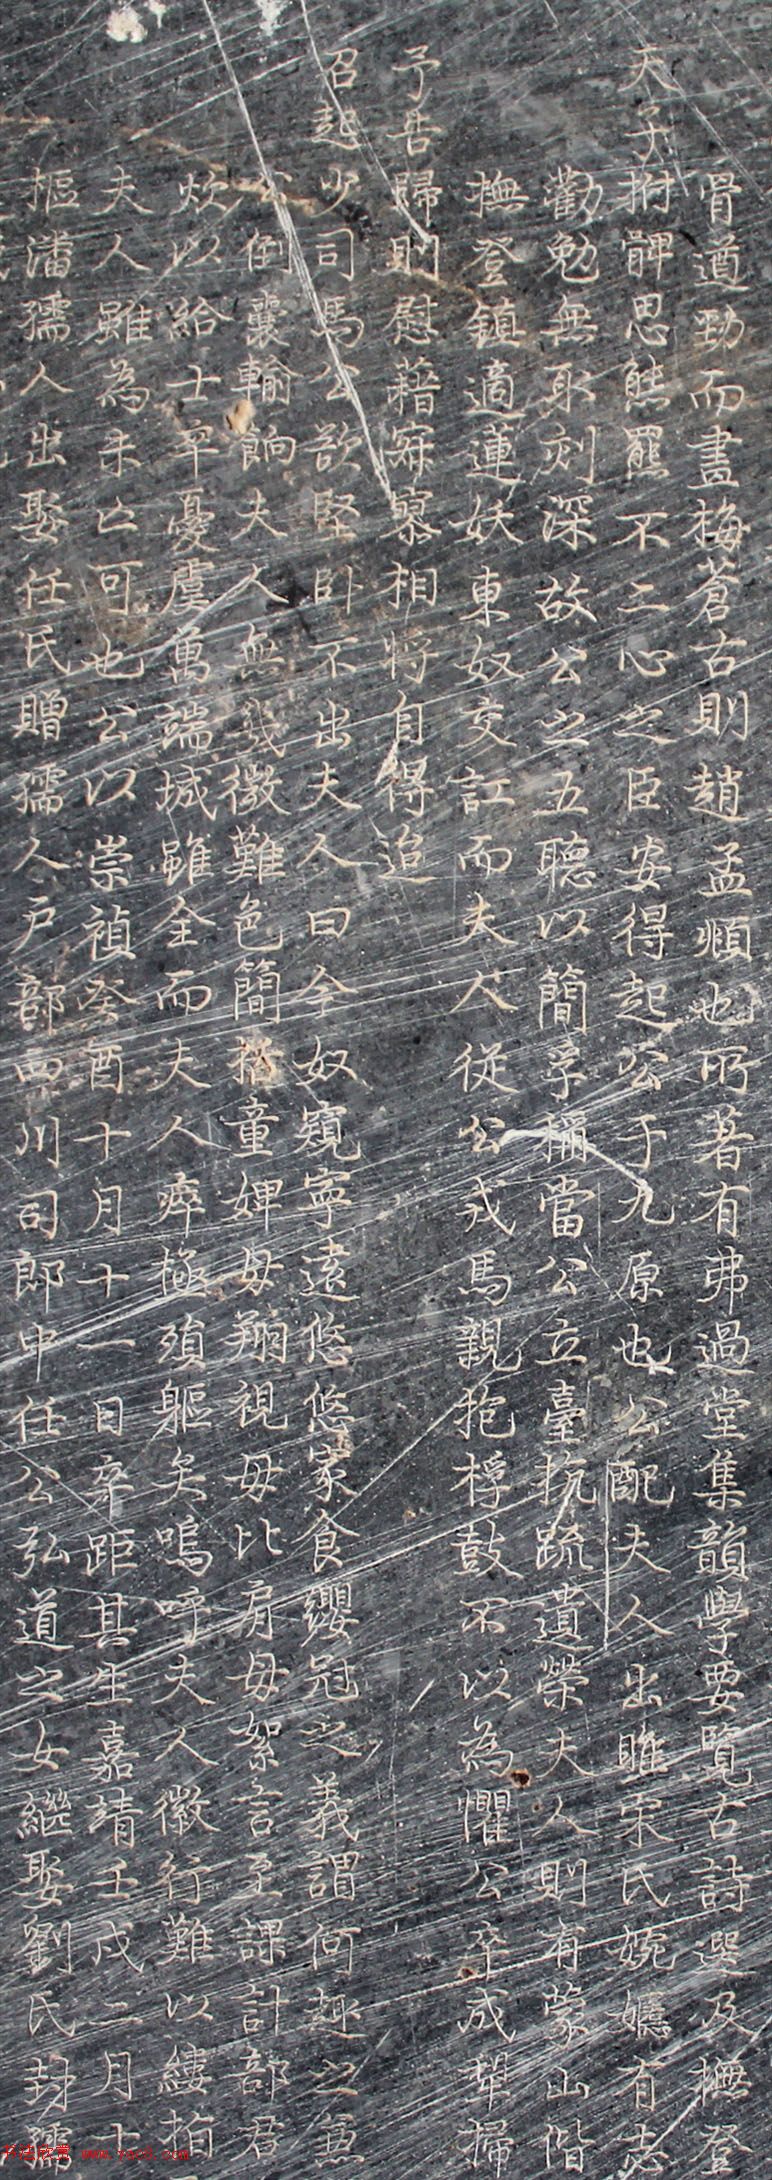 骨遒勁而畫梅蒼古則趙孟頫也所著有弗過堂集韻學要覽古詩選及撫登
天子拊髀思熊羆不二心之臣安得起公于九原也公配夫人出睢宋氏婉嫕有志
勸勉無取刻深故公之五聽以簡孚稱當公立臺抗疏遺榮夫人則有蒙山偕
撫登鎮適蓮妖東奴交訌而夫人從公戎馬親抱桴鼓不以為懼公卒成犂掃
予告歸則慰藉寂寞相將自得迨
召起少司馬公欲堅卧不出夫人曰今奴窺寧遠悠悠家食纓冠之義謂何趣之
公倒囊輸餉夫人無幾微難色簡 童婢毋翔視毋比肩毋絮言至課計部君
炊以給士卒憂虞萬端城雖全而夫人瘁極殞軀矣嗚呼夫人徽行難以縷
夫人雖為未亡可也公以崇禎癸酉十月十一日卒距其生嘉靖壬戌二月十
摳潘孺人出娶任氏贈孺人戶部四川司郎中任公弘道之女繼娶劉氏封孺
书法欣赏 www.yac8.com